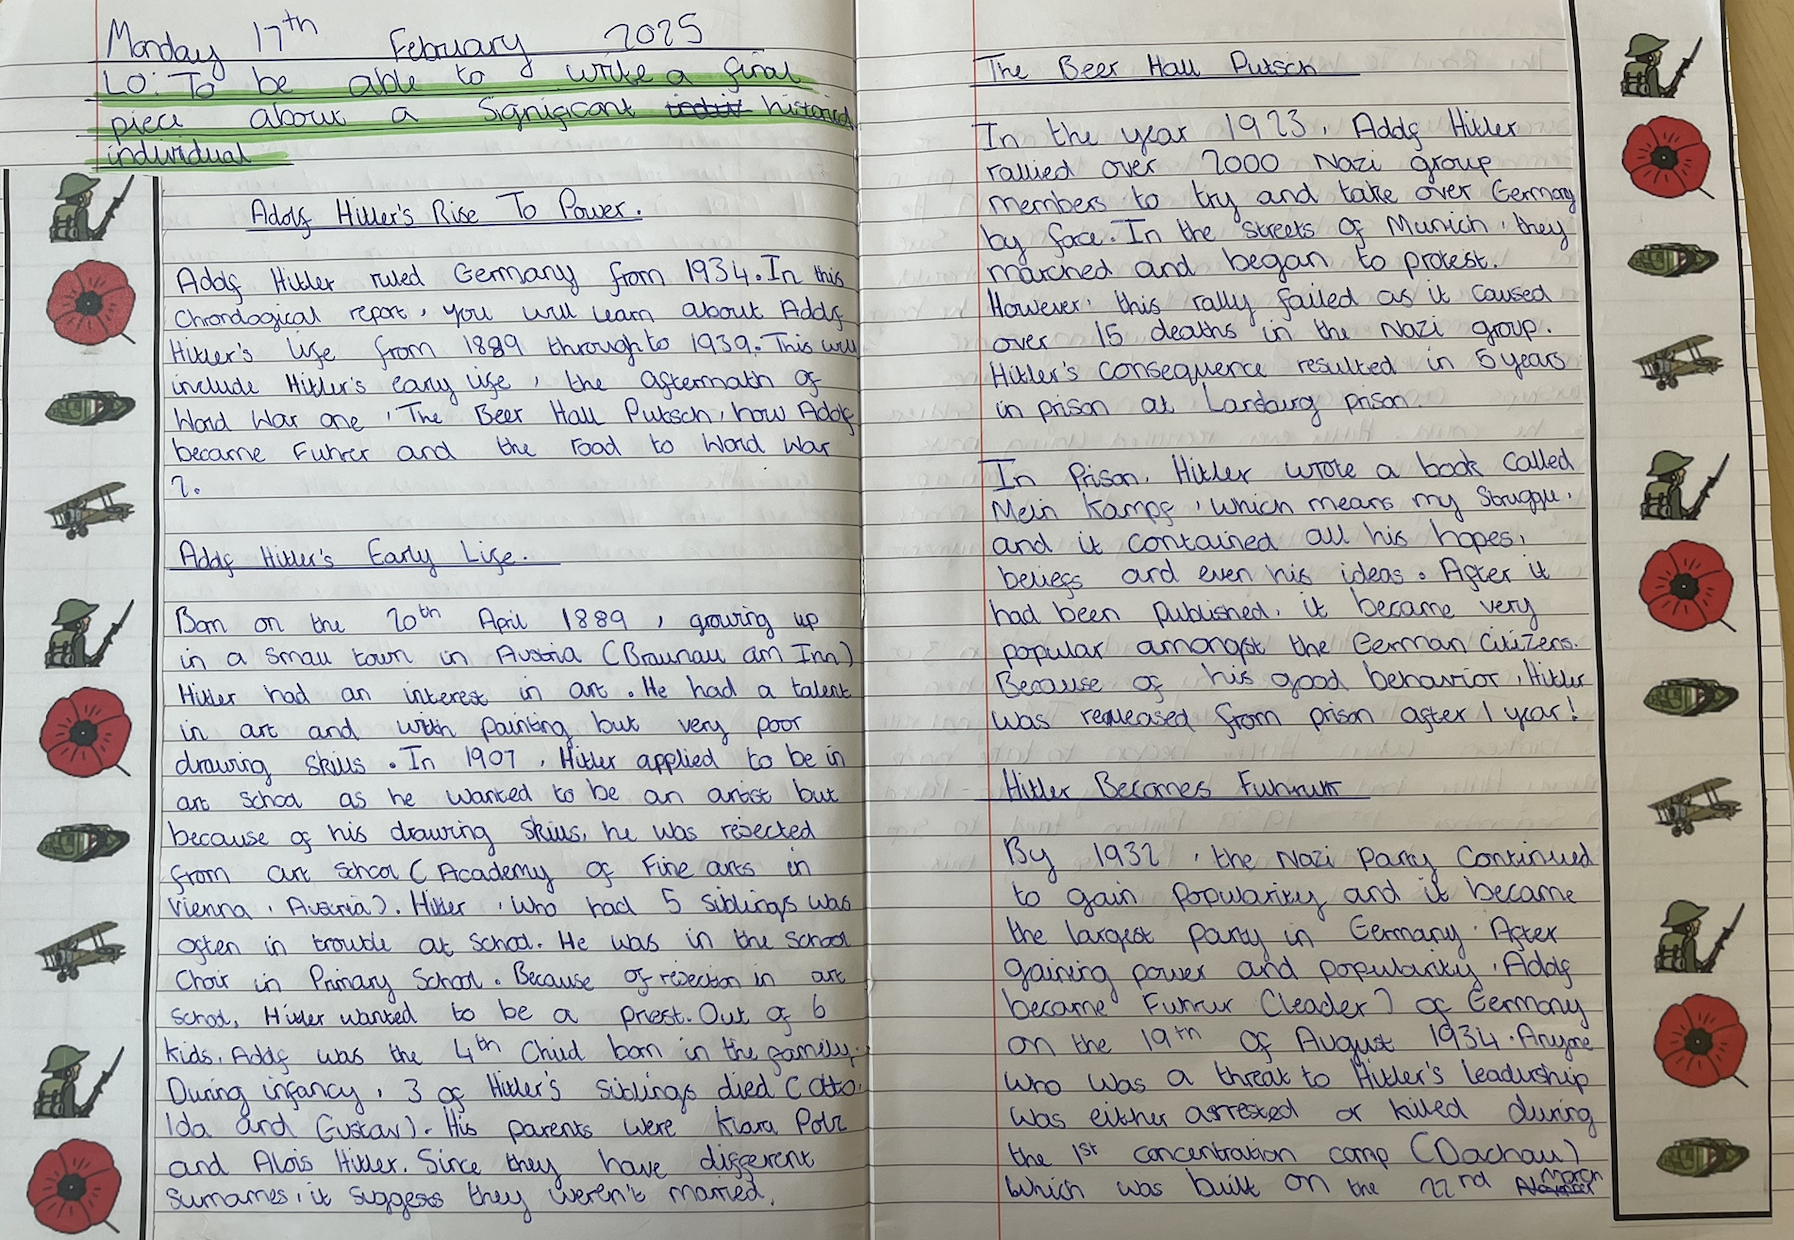 Monday 17th February 2025
LO: To be able to write a final
piece about a significant historical
individual
Adolf Hitler's Rise To Power.
Adolf Hitler ruled Germany from 1934. In this
chronological report, you will learn about Adolf
Hitler's life from 1889 through to 1939. This will
include Hitler's early life, the aftermath of
World War one, The Beer Hall Putsch, how Adolf
became Fuhrer and the road to World War
2.
Adolf Hitler's Early Life.
Born on the 20th April 1889, growing up
in a small town in Austria (Braunau am Inn)
Hitler had an interest in art. He had a talent
in art and with painting but very poor
drawing skills. In 1907, Hitler applied to be in
art school as he wanted to be an artist but
because of his drawing skills, he was rejected
from art school (Academy of Fine arts in
Vienna, Austria). Hitler, who had 5 siblings was
often in trouble at school. He was in the school
choir in Primary School. Because of rejection in art
school, Hitler wanted to be a priest. Out of 6
kids, Adolf was the 4th child born in the family.
During infancy, 3 of Hitler's siblings died (Otto,
Ida and Gustav). His parents were Klara Polz
and Alois Hitler. Since they have different
surnames, it suggests they weren't married.
The Beer Hall Putsch
In the year 1923, Adolf Hitler
rallied over 2000 Nazi group
members to try and take over Germany
by force. In the streets of Munich, they
marched and began to protest.
However, this rally failed as it caused
over 15 deaths in the Nazi group.
Hitler's consequence resulted in 5 years
in prison at Landburg prison.
In Prison, Hitler wrote a book called
Mein Kampf, which means my struggle,
and it contained all his hopes,
beliefs and even his ideas. After it
had been published, it became very
popular amongst the German citizens.
Because of his good behavior, Hitler
was released from prison after 1 year!
Hitler Becomes Fuhrur
By 1932, the Nazi Party continued
to gain popularity and it became
the largest party in Germany. After
gaining power and popularity, Adolf
became Fuhrur (leader) of Germany
on the 19th of August 1934. Anyone
who was a threat to Hitler's leadership
was either arrested or killed during
the 1st concentration camp (Dachau)
which was built on the 22nd March